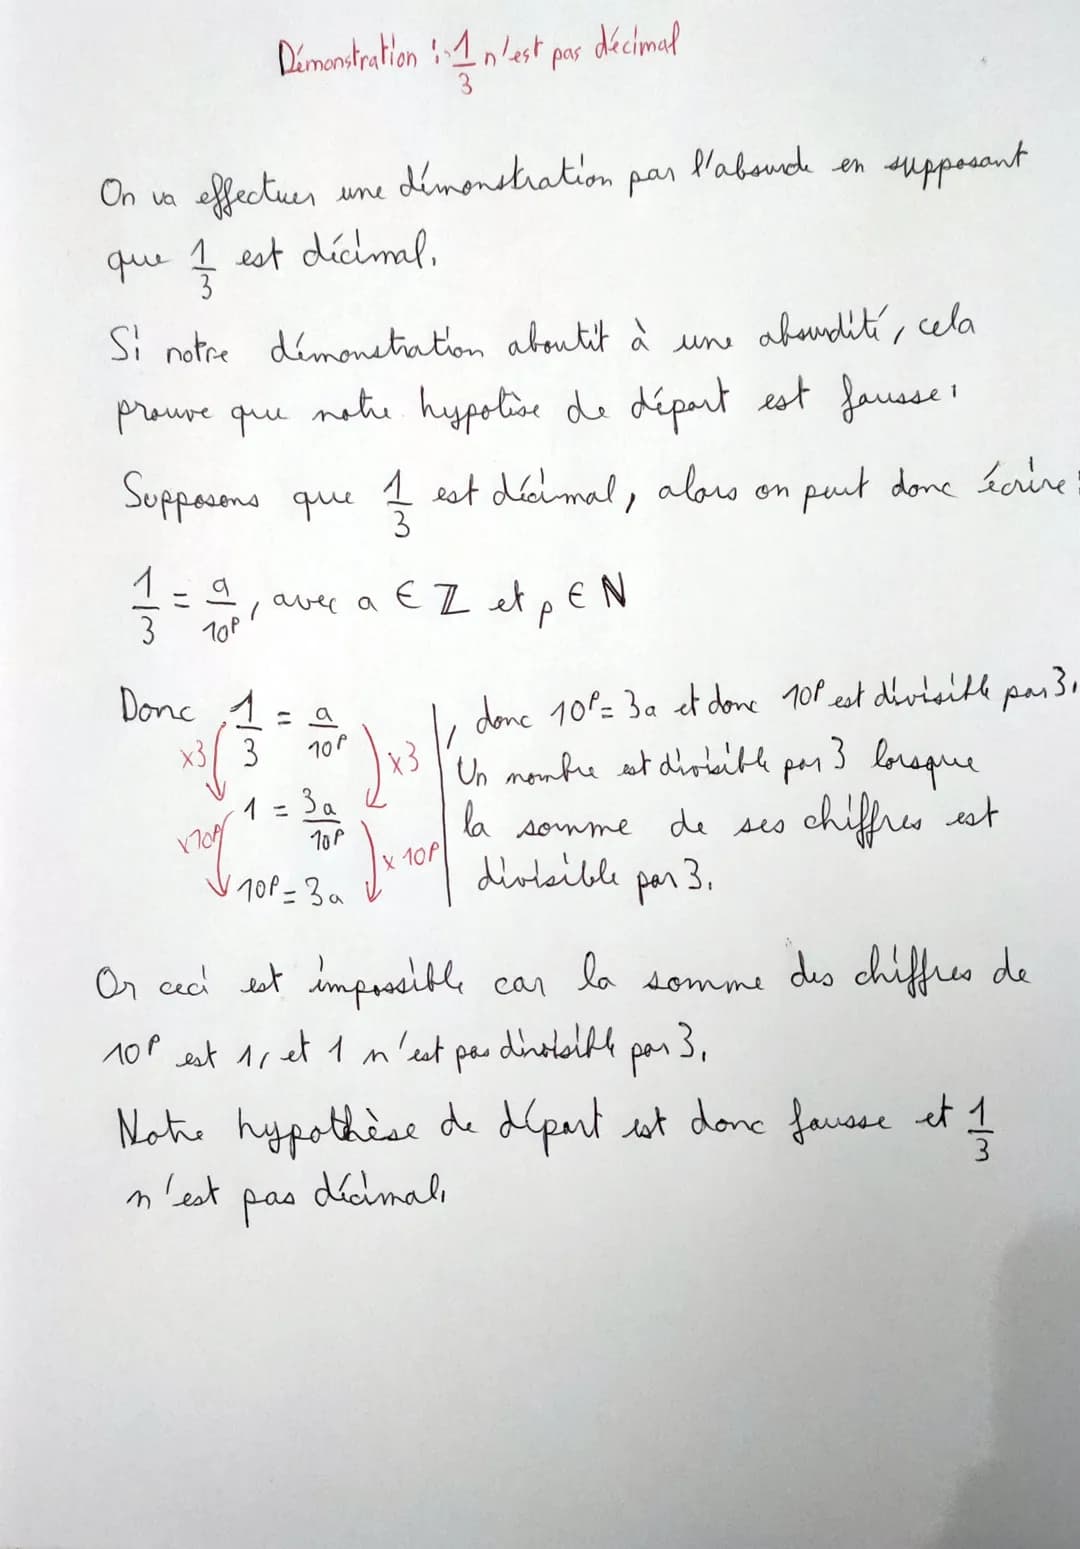 Démonstration : 1/3 n'est pas décimal
On va effectuer une démonstration par l'absurde en supposant
que 1/3 est décimal.
Si notre démonstration aboutit à une absurdité, cela
prouve que notre hypotèse de départ est fausse.
Supposons que 1/3 est décimal, alors on peut donc écrire :
1/3 = a/10^p, avec a ∈ ℤ et p ∈ ℕ
Donc 1/3 = a/10^p
×3 ×3
1 = 3a/10^p
×10^p ×10^p
10^p = 3a
, donc 10^p = 3a et donc 10^p est divisible par 3.
Un nombre est divisible par 3 lorsque
la somme de ses chiffres est
divisible par 3.
Or ceci est impossible car la somme des chiffres de
10^p est 1, et 1 n'est pas divisible par 3.
Notre hypothèse de départ est donc fausse et 1/3
n'est pas décimal.